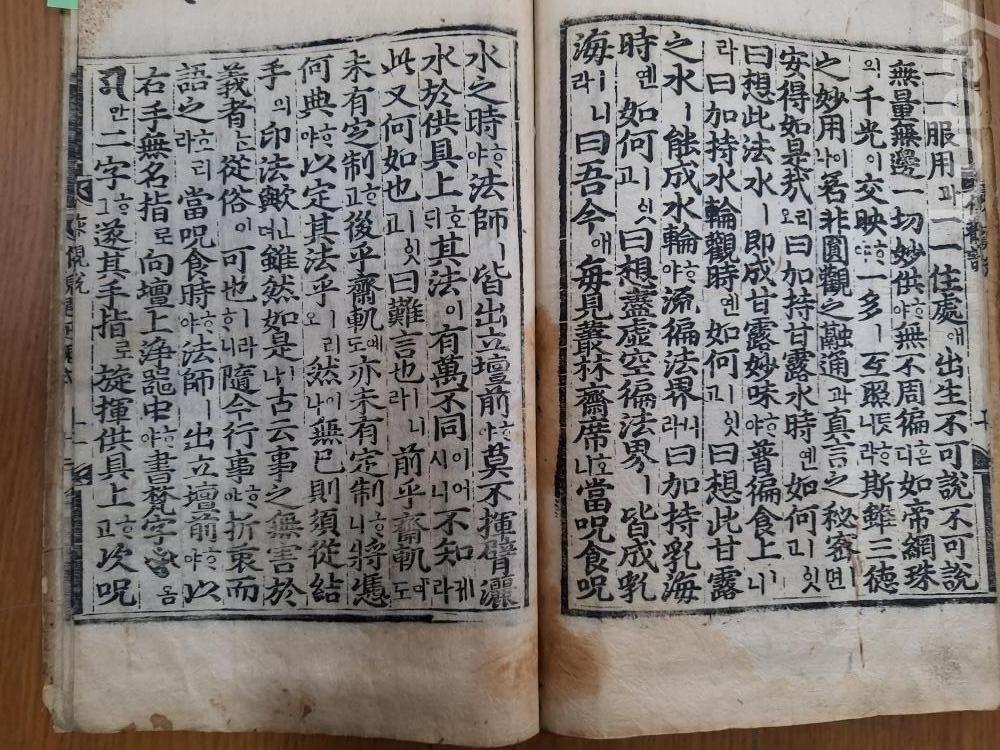 一一服用과一一住處애出生不可說不可說
無量無邊一切妙供ᄒᆞ야無不周徧혼디如帝網珠
의千光이交映ᄒᆞ야一多ㅣ互照ᄒᆞ니라斯雖三德
之妙用이나若非圓觀之融通과真言之秘密이면
安得如是哉오리曰加持甘露水時옌如何잇고
曰想此法水ㅣ即成甘露妙味ᄒᆞ야普徧食上이니
라曰加持水輪觀時옌如何잇고曰想此甘露
之水ㅣ能成水輪ᄒᆞ야流徧法界ㅣ니라曰加持乳海
時옌如何잇고曰想盡虛空徧法界ㅣ皆成乳
海ㅣ니라曰吾今애每見叢林齋席호니當呪食呪
水之時ᄒᆞ야法師ㅣ皆出立壇前ᄒᆞ야莫不揮臂灑
水於供具上호ᄃᆡ其法이有萬不同이어시니不知게라
此又何如也잇고曰難言也ㅣ니라前乎齋軌애도
未有定制ᄒᆞ고後乎齋軌애도亦未有定制ᄒᆞ니將憑
何典ᄒᆞ야以定其法乎리오然이나無已則須從結
手의印法歟ㅣㄴ뎌雖然如是나古云事之無害於
義者ᄂᆞᆫ從俗이可也ㅣ라ᄒᆞ니隨今行事ᄒᆞ야折衷而
語之호리라當呪食時ᄒᆞ야法師ㅣ出立壇前ᄒᆞ야以
右手無名指로向壇上淨器中ᄒᆞ야書梵字옴
만二字ᄒᆞ고遂其手指로旋揮供具上ᄒᆞ고次呪